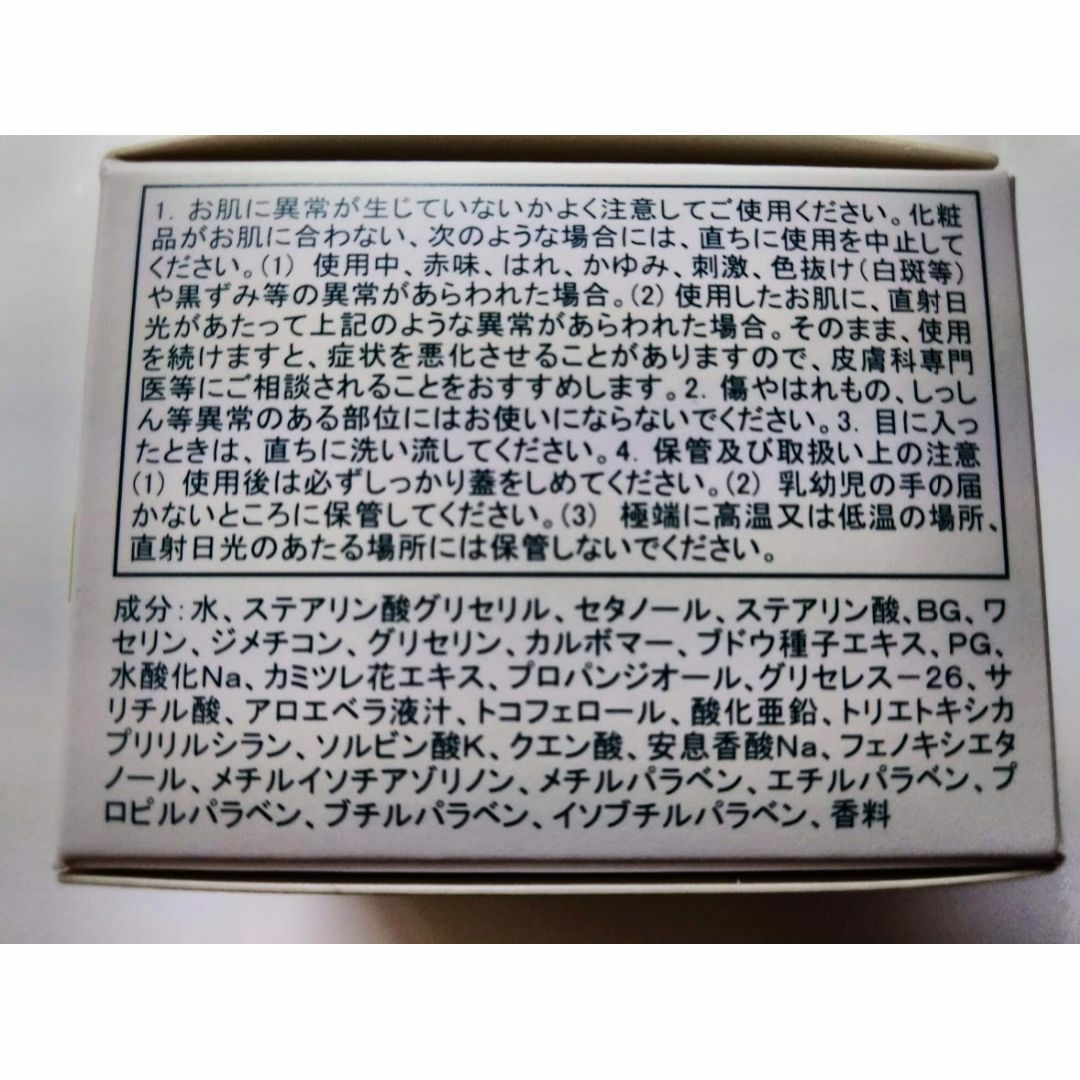 1. お肌に異常が生じていないかよく注意してご使用ください。化粧
品がお肌に合わない、次のような場合には、直ちに使用を中止して
ください。(1) 使用中、赤味、はれ、かゆみ、刺激、色抜け(白斑等)
や黒ずみ等の異常があらわれた場合。(2) 使用したお肌に、直射日
光があたって上記のような異常があらわれた場合。そのまま、使用
を続けますと、症状を悪化させることがありますので、皮膚科専門
医等にご相談されることをおすすめします。2. 傷やはれもの、しっし
ん等異常のある部位にはお使いにならないでください。3. 目に入っ
たときは、直ちに洗い流してください。4. 保管及び取扱い上の注意
(1) 使用後は必ずしっかり蓋をしめてください。(2) 乳幼児の手の届
かないところに保管してください。(3) 極端に高温又は低温の場所、
直射日光のあたる場所には保管しないでください。
成分:水、ステアリン酸グリセリル、セタノール、ステアリン酸、BG、ワ
セリン、ジメチコン、グリセリン、カルボマー、ブドウ種子エキス、PG、
水酸化Na、カミツレ花エキス、プロパンジオール、グリセレス-26、サ
リチル酸、アロエベラ液汁、トコフェロール、酸化亜鉛、トリエトキシカ
プリリルシラン、ソルビン酸K、クエン酸、安息香酸Na、フェノキシエタ
ノール、メチルイソチアゾリノン、メチルパラベン、エチルパラベン、プ
ロピルパラベン、ブチルパラベン、イソブチルパラベン、香料